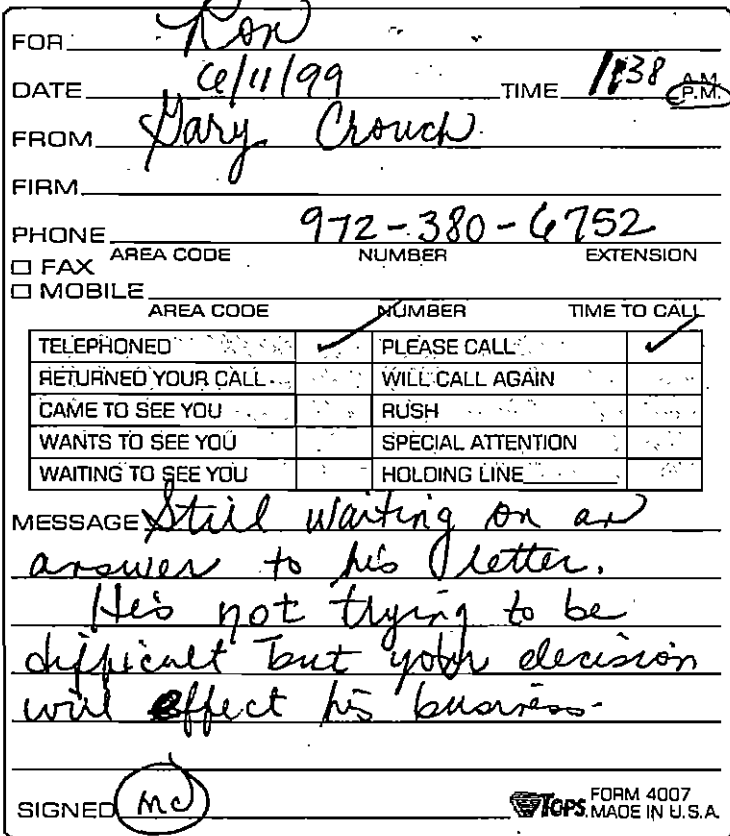 FOR Ron
DATE 6/11/99 TIME 1:38 A.M. P.M.
FROM Gary Crouch
FIRM
PHONE 972-380-6752
AREA CODE NUMBER EXTENSION
☐ FAX
☐ MOBILE
AREA CODE NUMBER TIME TO CALL
TELEPHONED ✓ PLEASE CALL ✓
RETURNED YOUR CALL WILL CALL AGAIN
CAME TO SEE YOU RUSH
WANTS TO SEE YOU SPECIAL ATTENTION
WAITING TO SEE YOU HOLDING LINE
MESSAGE Still waiting on an
answer to his letter.
He's not trying to be
difficult but your decision
will effect his business.
SIGNED mc
TOPS FORM 4007
MADE IN U.S.A.